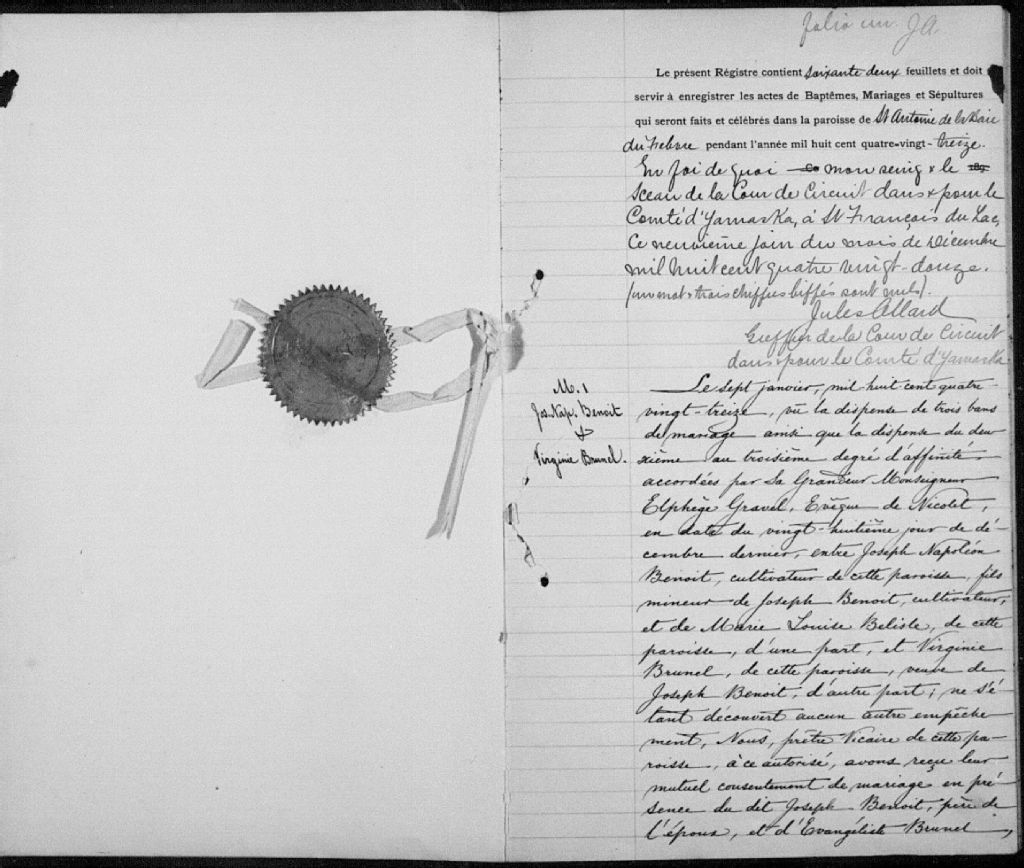 folio un. JA
Le présent Régistre contient soixante deux feuillets et doit
servir à enregistrer les actes de Baptêmes, Mariages et Sépultures
qui seront faits et célébrés dans la paroisse de St Antoine de la Baie
du Febvre pendant l'année mil huit cent quatre-vingt-treize.
En foi de quoi mon seing & le 189
Sceau de la Cour de Circuit dans & pour le
Comté d'Yamaska, à St François du Lac,
Ce neuvième jour du mois de Décembre
mil huit cent quatre vingt-douze.
(un mot & trois chiffres biffés sont nuls).
Jules Allard
Greffier de la Cour de Circuit
dans & pour le Comté d'Yamaska
M. 1
Jos. Nap. Benoit
&
Virginie Brunel.
Le sept janvier, mil huit cent quatre-
vingt-treize, vû la dispense de trois bans
de mariage ainsi que la dispense du deu
xième au troisième degré d'affinité
accordées par Sa Grandeur Monseigneur
Elphège Gravel, Evêque de Nicolet,
en date du vingt-huitième jour de dé-
cembre dernier, entre Joseph Napoléon
Benoit, cultivateur de cette paroisse, fils
mineur de Joseph Benoit, cultivateur,
et de Marie Louise Belisle, de cette
paroisse, d'une part, et Virginie
Brunel, de cette paroisse, veuve de
Joseph Benoit, d'autre part; ne s'é-
tant découvert aucun autre empêche
ment, Nous, prêtre Vicaire de cette pa-
roisse, à ce autorisé, avons reçu leur
mutuel consentement de mariage en pré-
sence du dit Joseph Benoit, père de
l'époux, et d'Evangéliste Brunel,